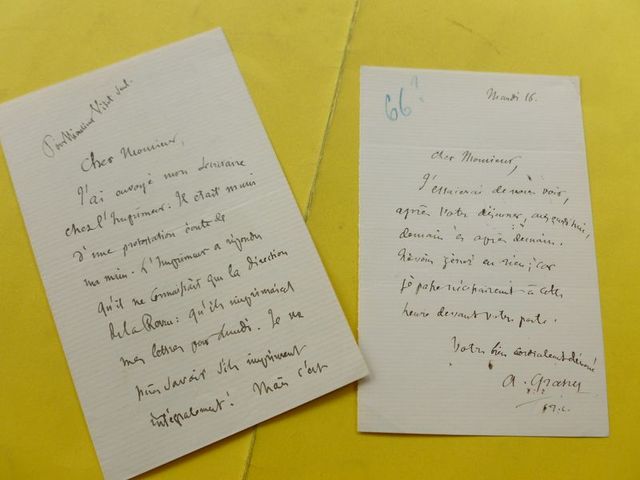 Pour Monsieur Vital
Cher Monsieur,
J'ai envoyé mon
chez l'Imprimeur. Il était muni
d'une protestation écrite de
ma main. L'Imprimeur a répondu
qu'il ne connaissait que la direction
de la Revue: qu'ils imprimaient
mes lettres pour Lundi. Je ne
puis savoir s'ils impriment
intégralement! Mais c'est
66?
Mardi 16.
Cher Monsieur,
J'essaierai de vous voir,
après votre déjeuner,
demain et après demain.
gêné en rien; car
je passe nécessairement à cette
heure devant votre porte.
Votre bien cordialement dévoué